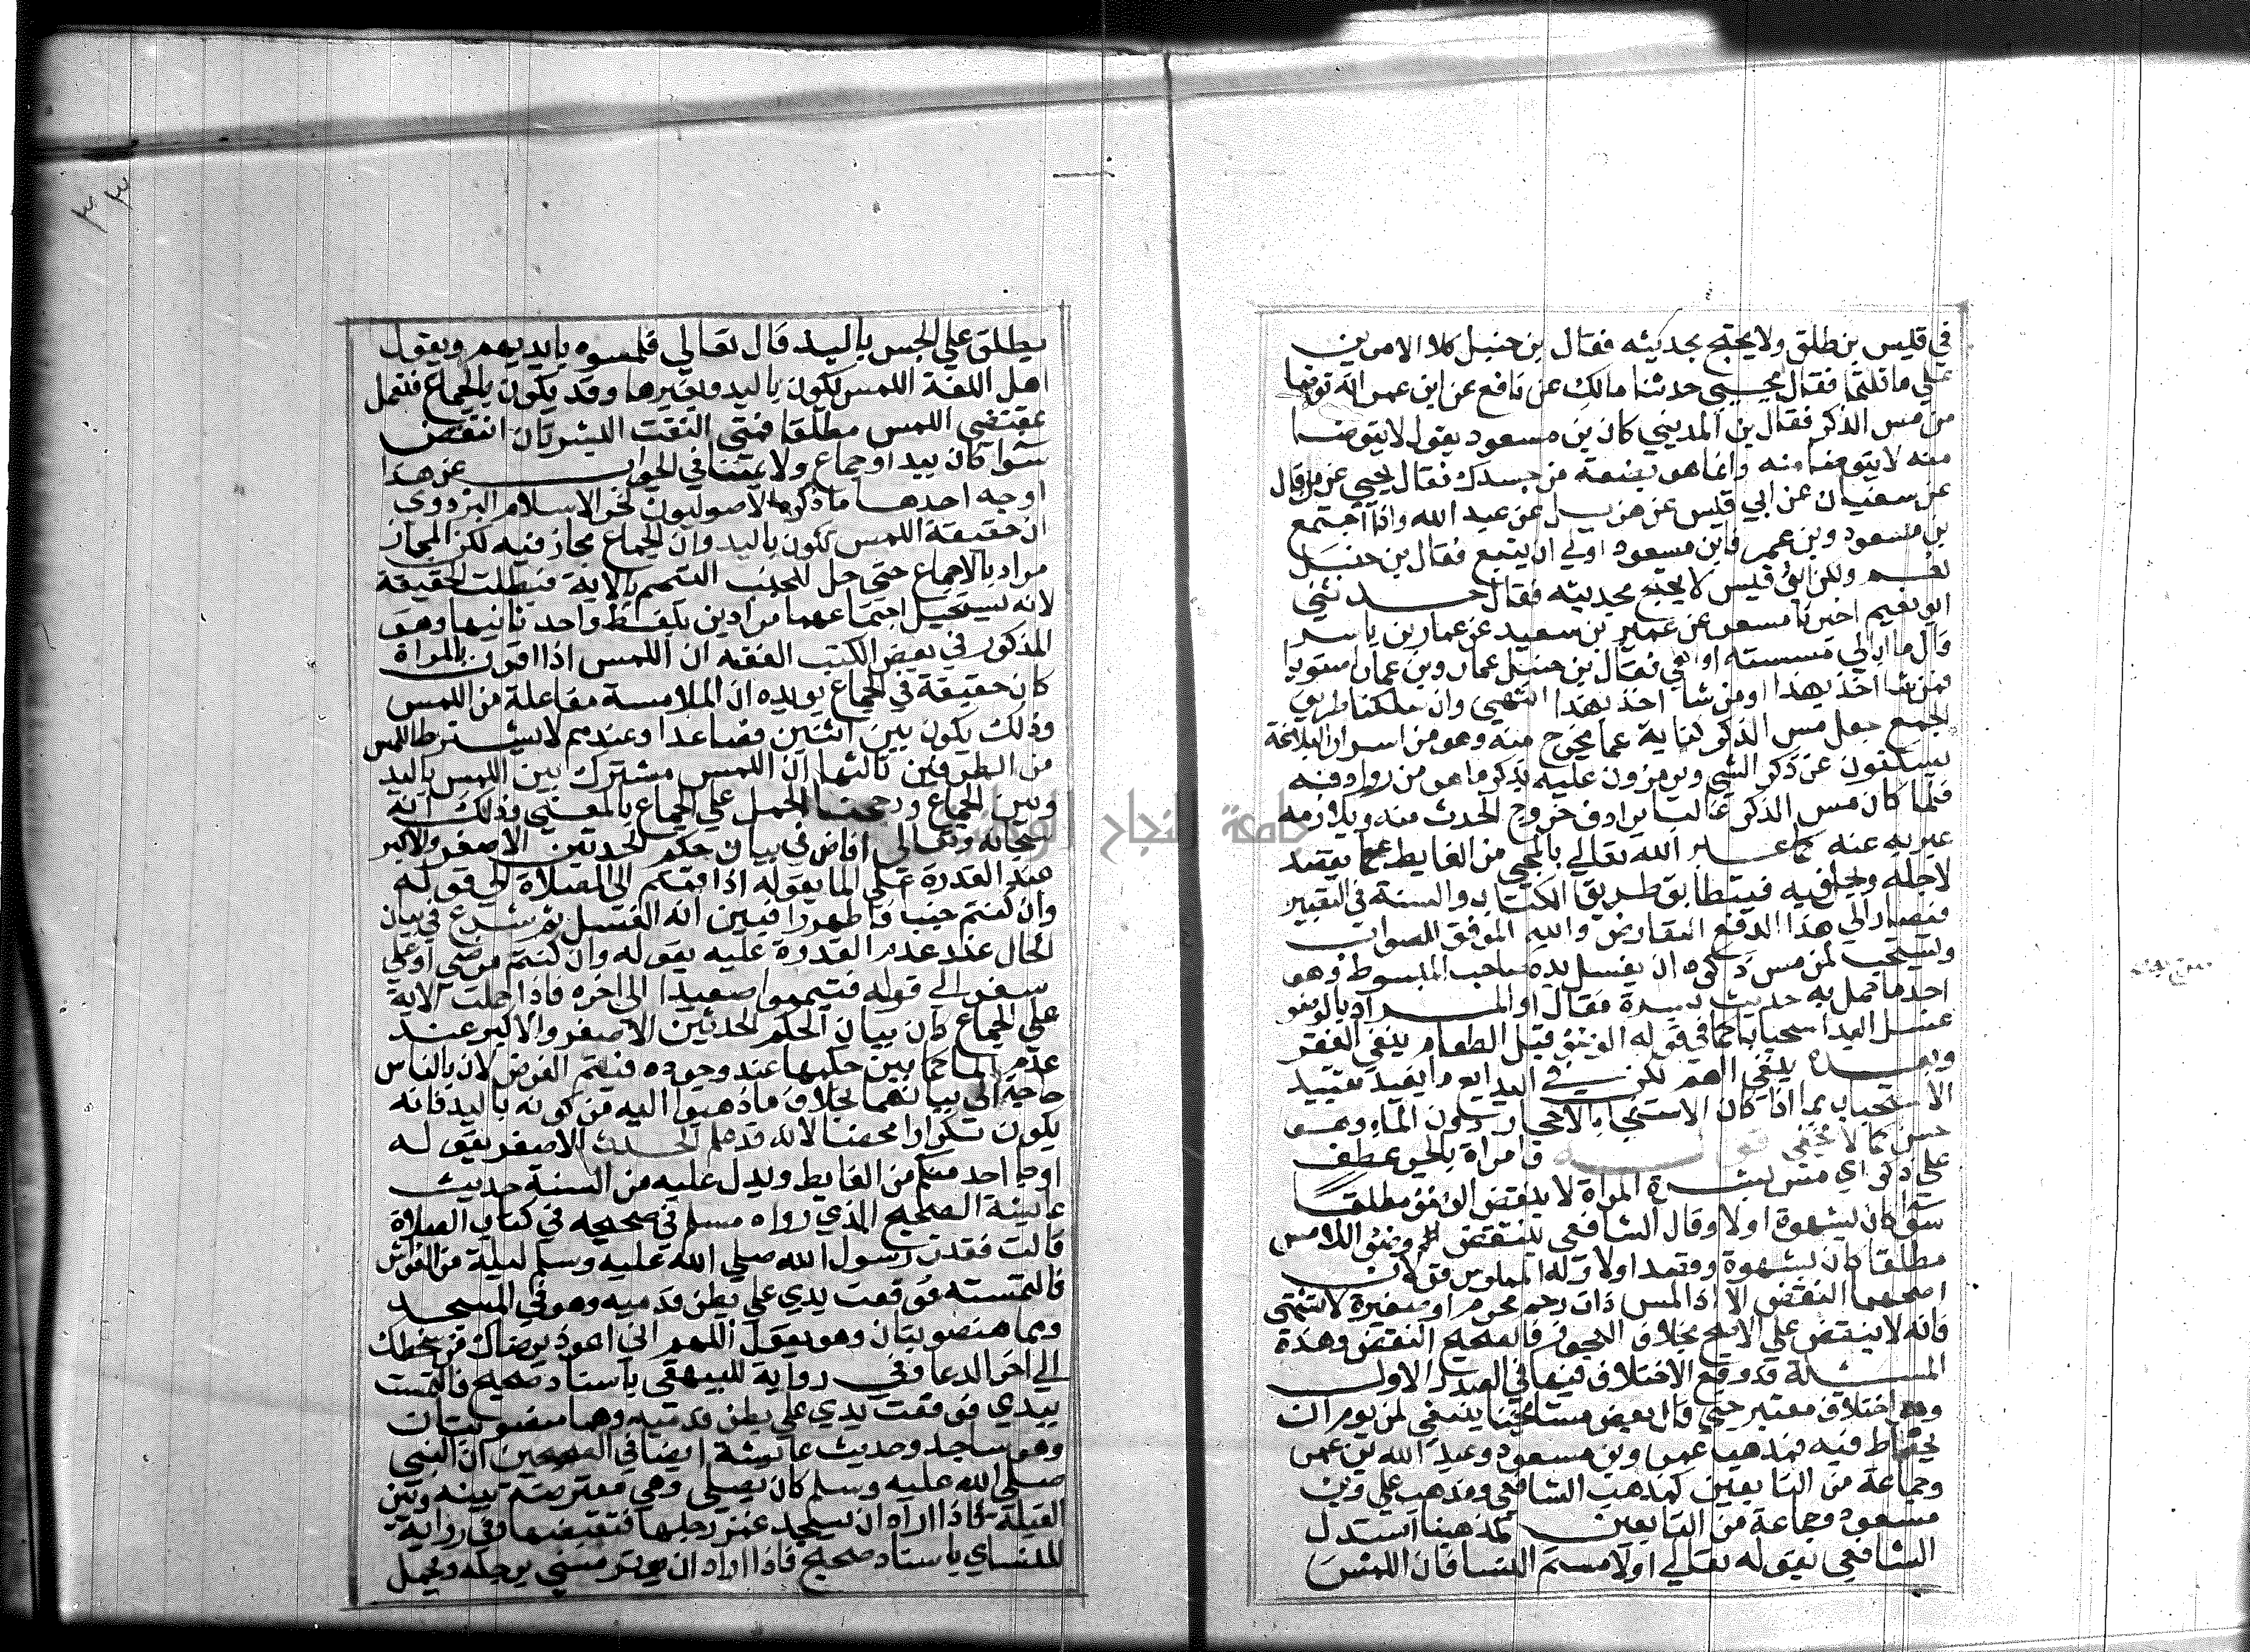 في قليس بن طلق ولا يحتج بحديثه فقال بن حنبل كلا الامرين
علي ما قلتما فقال يحيي حدثنا مالك عن نافع عن ابن عمر انه توضا
من مس الذكر فقال بن المديني كان بن مسعود يقول لا يتوضا
منه لا يتوضا منه وانما هو بضعة من جسدك فقال يحيي عن من قال
عن سفيان عن ابي قليس عن هزيل عن عبد الله واذا اجتمع
بن مسعود وبن عمر فابن مسعود اولي ان يتبع فقال بن حنبل
نعم ولكن ابو قليس لا يحتج بحديثه فقال حدثني
ابو نعيم اخبرنا مسعر عن عمير بن سعيد عن عمار بن ياسر
قال ما ابالي مسسته او انفي فقال بن حنبل عمار وبن عمر استويا
فمن شا اخذ بهذا ومن شا اخذ بهذا انتهيي وان سلكنا طريق
الجمع جعل مس الذكر كناية عما يخرج منه وهو من اسرار البلاغة
يسكتون عن ذكر الشي ويرمزون عليه بذكر ما هو من روادفه
فلما كان مس الذكر غالبا يرادف خروج الحدث منه ويلازمه
عبر به عنه كما عبر الله تعالي بالمجي من الغايط عما يقصد
لاجله ويحل فيه فيتطابق طريقا الكتاب والسنة في التعبير
فيصار الي هذا لدفع التعارض والله الموفق للصواب
ويستحب لمن مس ذكره ان يغسل يده صاحب المبسوط وهو
احد ما حمل به حديث بسرة فقال او المراد بالوضو
غسل اليد استحبابا كما في قوله الوضو قبل الطعام ينفي الفقر
وبعده ينفي الهم لكن في البدايع ما يفيد تقييد
الاستحباب بما اذا كان الاستنجا بالاحجار دون الماء وهو
حسن كما لا يخفي قوله وامراة بالجر عطف
علي ذكر اي مس بشرة المراة لا ينقض الوضو مطلقا
سوا كان بشهوة اولا وقال الشافعي ينتقض وضو اللامس
مطلقا كان بشهوة وتعمد اولا وله في الملموس قولان
اصحهما النقض الا اذا لمس ذات رحم محرم او صغيرة لا تشتهي
فانه لا ينتقض علي الاصح بخلاف العجوز فالصحيح النقض وهذه
المسئلة قد وقع الاختلاف فيها في الصدر الاول
وهو اختلاف معتبر حتي قال بعض مشايخنا ينبغي لمن يوم ان
يحتاط فيه فمذهب عمر وبن مسعود وعبد الله بن عمر
وجماعة من التابعين كمذهب الشافعي ومذهب علي وبن
مسعود وجماعة من التابعين كمذهبنا استدل
الشافعي بقوله تعالي اولامستم النسا فان اللمس
يطلق علي الجس باليد قال تعالي فلمسوه بايديهم ويقول
اهل اللغة اللمس يكون باليد وبغيرها وقد يكون بالجماع فنعمل
بمقتضي اللمس مطلقا فمتي التقت البشرتان انتقض
سوا كان بيد او جماع ولايمتنا في الجواب عن هذا
اوجه احدها ما ذكره الاصوليون كفخر الاسلام البزدوي
ان حقيقة اللمس تكون باليد وان الجماع مجاز فيه لكن المجاز
مراد بالاجماع حتي حل للجنب التيمم بالاية فبطلت الحقيقة
لانه يستحيل اجتماعهما مرادين بلفظ واحد ثانيها وهو
المذكور في بعض الكتب الفقه ان اللمس اذا اقرن بالمراة
كان حقيقة في الجماع يويده ان الملامسة مفاعلة من اللمس
وذلك يكون بين اثنين فصاعدا وعندهم لا يشترط اللمس
من الطرفين ثالثها ان اللمس مشترك بين اللمس باليد
وبين الجماع ورجحنا الحمل علي الجماع بالمعني وذلك انه
سبحانه وتعالي افاض في بيان حكم الحدثين الاصغر والاكبر
عند القدرة علي الما بقوله اذا قمتم الي الصلاة الي قوله
وان كنتم جنبا فاطهروا فبين انه الغسل ثم شرع في بيان
الحال عند عدم القدرة عليه بقوله وان كنتم مرضي او علي
سفر الي قوله فتيمموا صعيدا الي اخره فاذا حملت الاية
علي الجماع كان بيان الحكم الحدثين الاصغر والاكبر عند
عدم الما كما بين حكمها عند وجوده فيتم الغرض لان بالناس
حاجة الي بيانهما بخلاف ما ذهبوا اليه من كونه باليد فانه
يكون تكرارا محضا لانه قد علم الحدث الاصغر بقوله
او جا احد منكم من الغايط ويدل عليه من السنة حديث
عايشة الصحيح الذي رواه مسلم في صحيحه في كتاب الصلاة
قالت فقدت رسول الله صلي الله عليه وسلم ليلة من الفراش
فالتمسته فوقعت يدي علي بطن قدميه وهو في المسجد
وهما منصوبتان وهو يقول اللهم اني اعوذ برضاك من سخطك
الي اخر الدعا وفي رواية للبيهقي باسناد صحيح فالتمست
بيدي فوقعت يدي علي بطن قدميه وهما منصوبتان
وهو ساجد وحديث عايشة ايضا في الصحيحين ان النبي
صلي الله عليه وسلم كان يصلي وهي معترضة بينه وبين
القبلة فاذا اراد ان يسجد غمز رجلها فتقبضها وفي رواية
للنساي باسناد صحيح فاذا اراد ان يوتر مسني برجله ويحمل
جامعة النجاح الوطنية